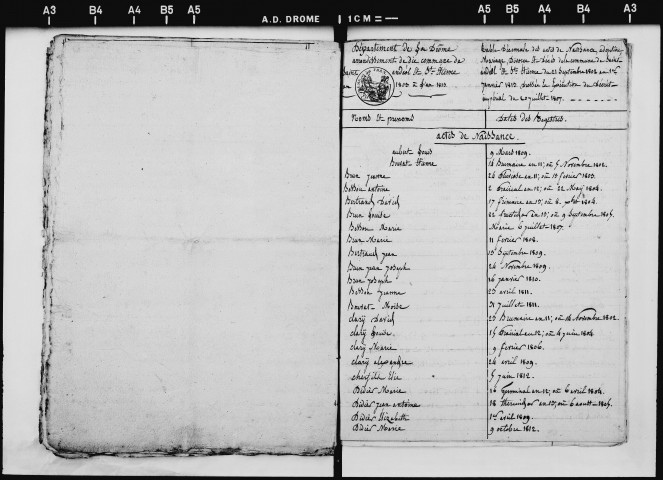 A3 B4 A4 B5 A5
A.D. DROME
1 CM =
A5 B5 A4 B4 A3
Département de la Drôme
arrondissement de die, commune de
Saint andéol et St. Etienne
1802 à
1813.
table décennale des actes de Naissance, adoption
Mariage, Divorce et décès de la commune de Saint
andéol et St. Etienne du 23 Septembre 1802 au 1er
janvier 1813. dressée en Exécution du décret
impérial du 20 juillet 1807.
Noms et prenoms
dattes des Registres.
actes de Naissance.
aubert Louis 9 Mars 1809.
Bouvat Etienne 14 Brumaire en 11; ou 5 Novembre 1802.
Brun jeanne 26 Pluviose en 11; ou 15 fevrier 1803.
Bellon antoine 2 Prairial an 12; ou 22 May 1804.
Bertrand David 17
Brun Louise 22 fructidor en 13; ou 9 Septembre 1805.
Bellon Marie Marie 6 juillet 1807.
Brun Marie 11 fevrier 1808.
Bertrand jean 15 Septembre 1809.
Brun jean joseph 24 Novembre 1809.
Brun joseph 26 janvier 1810.
Bellon jeanne 23 avril 1811.
Bouvat 31 juillet 1811.
clary David 23 Brumaire en 11; ou 14 Novembre 1802.
clary Louise 15 Prairial en 12; ou 4 juin 1804.
clary Marie 9 fevrier 1806.
clary alexandre 24 avril 1809.
Elie 5 juin 1812.
Didier Marie 16 Germinal en 12; ou 6 avril 1804.
Didier jean antoine 18 thermidor en 13; ou 6 aoust 1805.
Didier Elizabeth 1er avril 1809.
Didier Marie 9 octobre 1812.